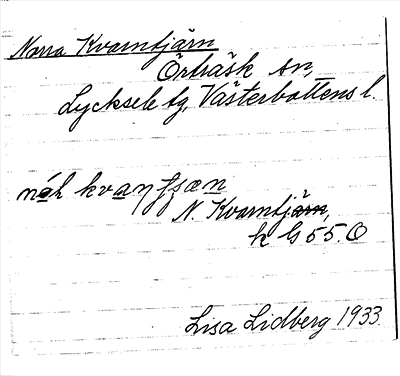 Norra Kvarntjärn
Örträsk sn,
Lycksele tg, Västerbottens l.
N. Kvarntjärn,
k G 55. O
Lisa Lidberg 1933.